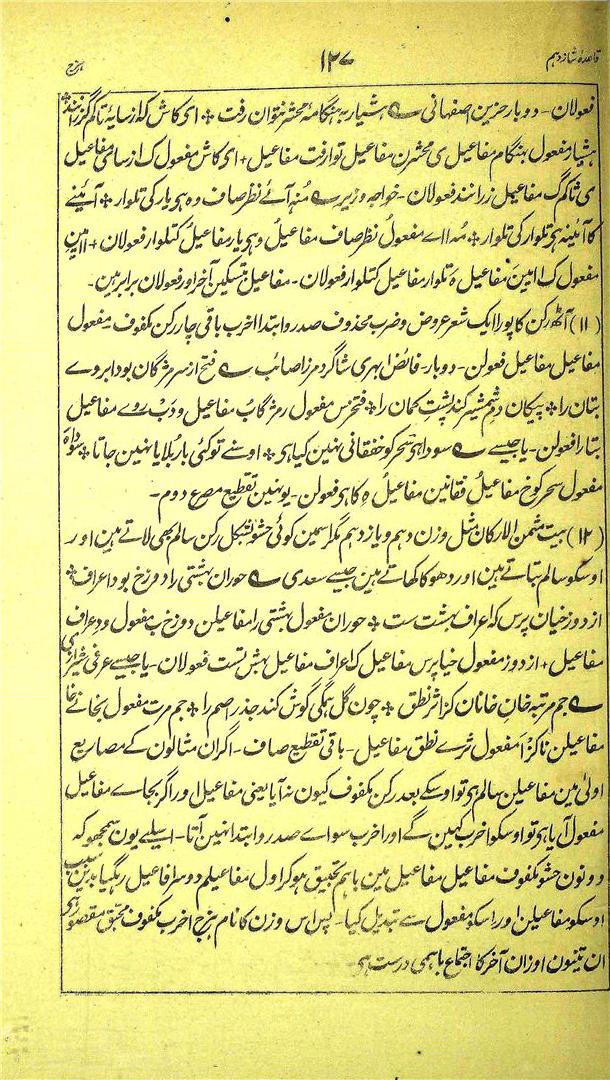 قاعدۂ شانزدہم ۱۲۷ ہزج
فعولان - دوبار حزین اصفہانی ؎ ہشیار بہ ہنگامۂ محشر نتوان رفت * ای کاش کہ از سایۂ تاکم گزرانند *
ہشیار مفعول بہنگام مفاعیل ی محشرن مفاعیل توارفت مفاعیل + ای کاش مفعول ک ازسای مفاعیل
ی تاکم گ مفاعیل زرانند فعولان - خواجہ وزیر ؎ مُنہ آئے نظر صاف وہ ہی یار کی تلوار * آئینے
کا آئینہ ہی تلوار کی تلوار * مُہ ااے مفعولُ نظر صاف مفاعیلُ وہی یار مفاعیلُ کتلوار فعولان + اا
مفعول ک اامین مفاعیل ہ تلوار مفاعیل کتلوار فعولان - مفاعیل بتسکین آخر اور فعولان برابر ہین -
(۱۱) آٹھ رکن کا پورا ایک شعر عروض و ضرب محذوف صدر و ابتدا اخرب باقی چار رکن مکفوف مفعول
مفاعیل مفاعیل فعولن - دوبار - فائض ابہری شاگرد مرزا صائب ؎ فتح از سر مژگان بود ابروے
بتان را * پیکان دم شمشیر کند پشت کمان را * فتحزس مفعول رمژگاب مفاعیل ودَبْ روے مفاعیل
بتارا فعولن - یا جیسے ؎ سودا ہی سحر کو خفقانی نہین کیا ہی * اوسنے تو کئی بار بُلایا نہین جاتا *
مفعول سحر کوخ مفاعیلُ فقانین مفاعیلُ ہِ کاہی فعولن - یونہین تقطیع مصرع دوم -
(۱۲) بیت مثمن الارکان مثل وزن دہم و یازدہم مگر اسمین کوئی حشو بشکل رکن سالم بھی لاتے ہین اور
اوسکو سالم بتاتے ہین اور دھوکا کھاتے ہین جیسے سعدی ؎ حوران بہشتی را دوزخ بود اعراف *
از دوزخیان پرس کہ اعراف بہشت ست * حوران مفعول بہشتی را مفاعیلن دوزخ ب مفعول ود عراف
مفاعیل + از دوز مفعول خیا پرس مفاعیل ک اعراف مفاعیل بہش تست فعولان - یا جیسے عرفی شیرازی
؎ جم مرتبہ خان خانان کز اثر نطق * چون گل ہمگی گوش کند جذر اصم را * جم مرت مفعول بخانے خا
مفاعیلن ناکز اَ مفعول ثرے نطق مفاعیل - باقی تقطیع صاف - اگر ان مثالون کے مصاریع
اولیٰ مین مفاعیلن سالم ہی تو اوسکے بعد رکن مکفوف کیون نہ آیا یعنی مفاعیل اور اگر بجاے مفاعیل
مفعول آیا ہی تو اوسکو اخرب کہین گے اور اخرب سواے صدر و ابتدا نہین آتا - اسلیے یون سمجھو کہ
دونون حشو مکفوف مفاعیل مفاعیل مین باہم تخبیق ہو کر اول مفاعیلم دوسرا فاعیل رہگیا بدین سبب
اوسکو مفاعیلن اور اسکو مفعول سے تبدیل کیا - پس اس وزن کا نام ہزج اخرب مکفوف مخبق مقصور ہی
ان تینون اوزان آخر کا اجتماع باہمی درست ہی -